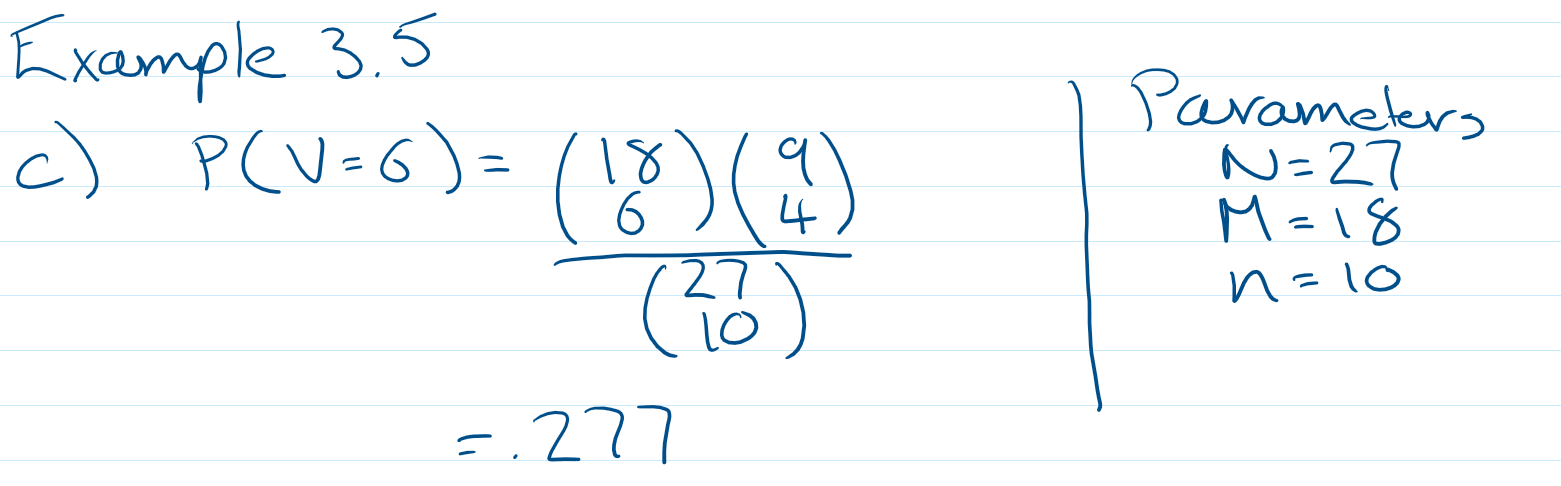 Example 3.5
c) P(V=6) = (18 6)(9 4) / (27 10)
= .277
Parameters
N=27
M=18
n=10